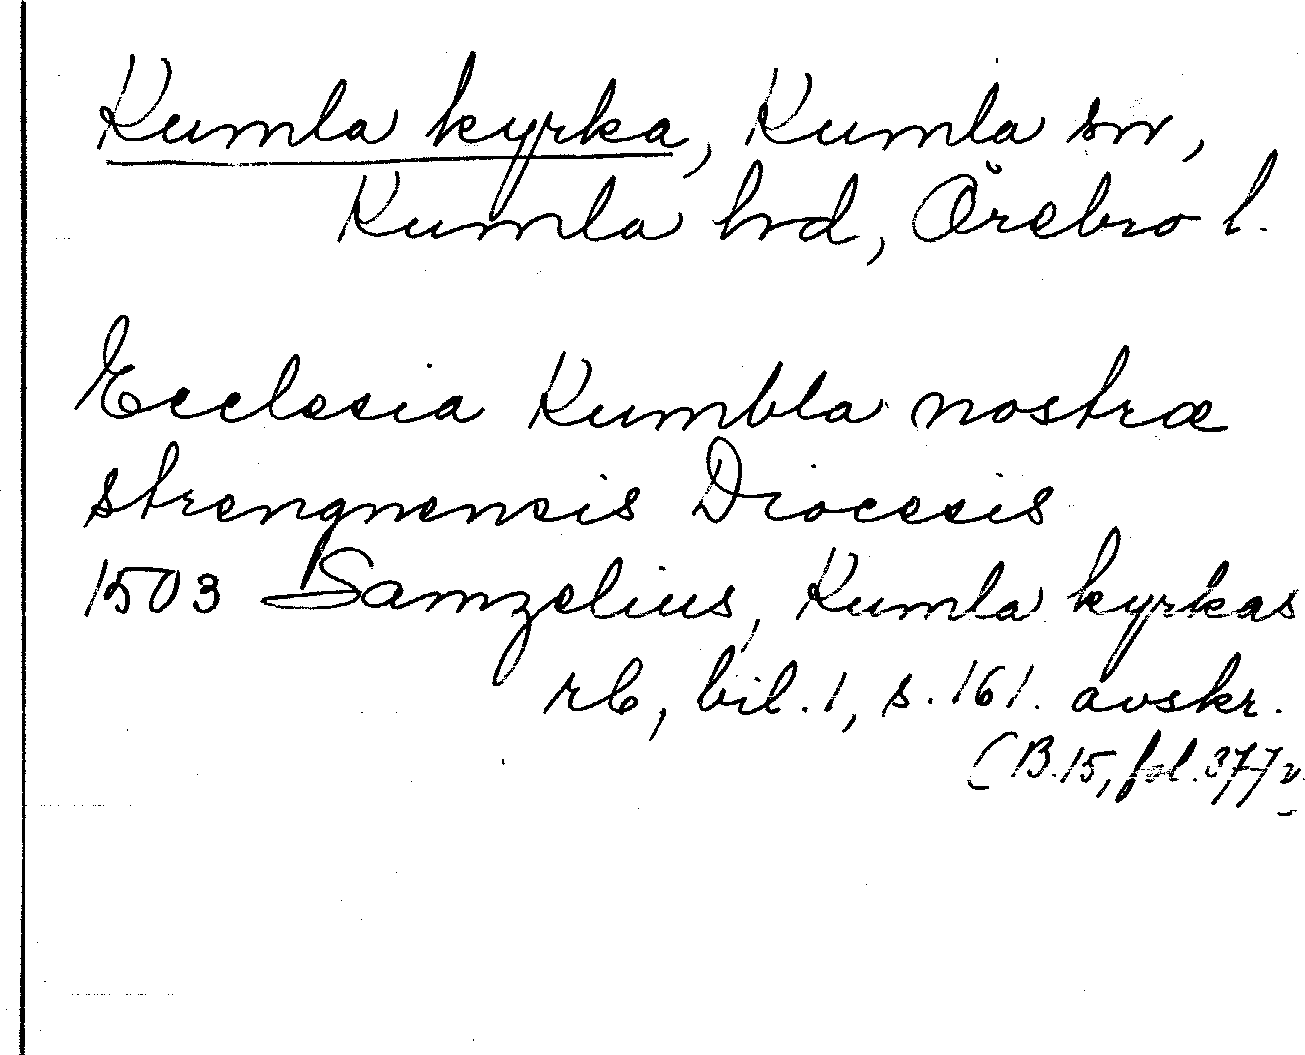 Kumla kyrka, Kumla sn,
Kumla hrd, Örebro l.
Ecclesia Kumbla nostræ
strengnensis Diocesis
1503 Samzelius, Kumla kyrkas
rb, bil. 1, s. 161. avskr.
(B.15, fol. 377v